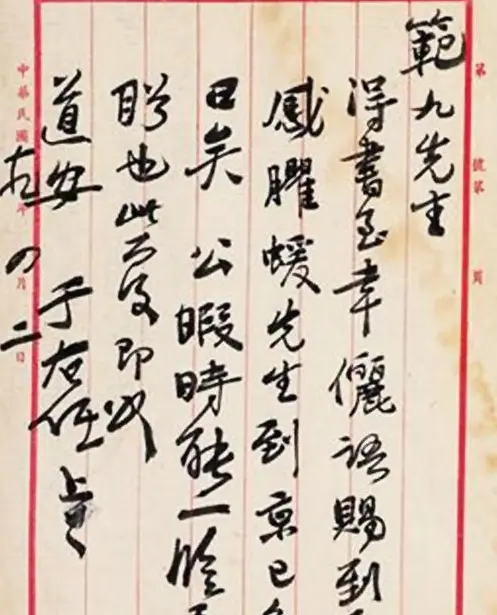 第 號第 頁
範九先生
得書至幸儷語賜到
感臞蝯先生到京已
日矣 公暇時能一臨
盼也此复即
道安 于右任 上
中華民國 年 月二日